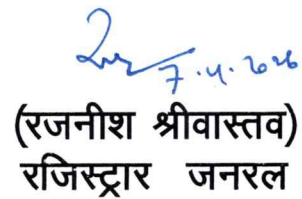 7.4.2026
(रजनीश श्रीवास्तव)
रजिस्ट्रार जनरल